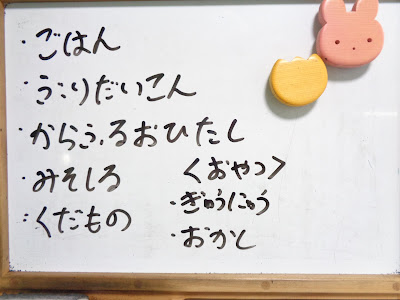 ・ごはん
・ぶりだいこん
・からふるおひたし
・みそしる
・くだもの
<おやつ>
・ぎゅうにゅう
・おかし